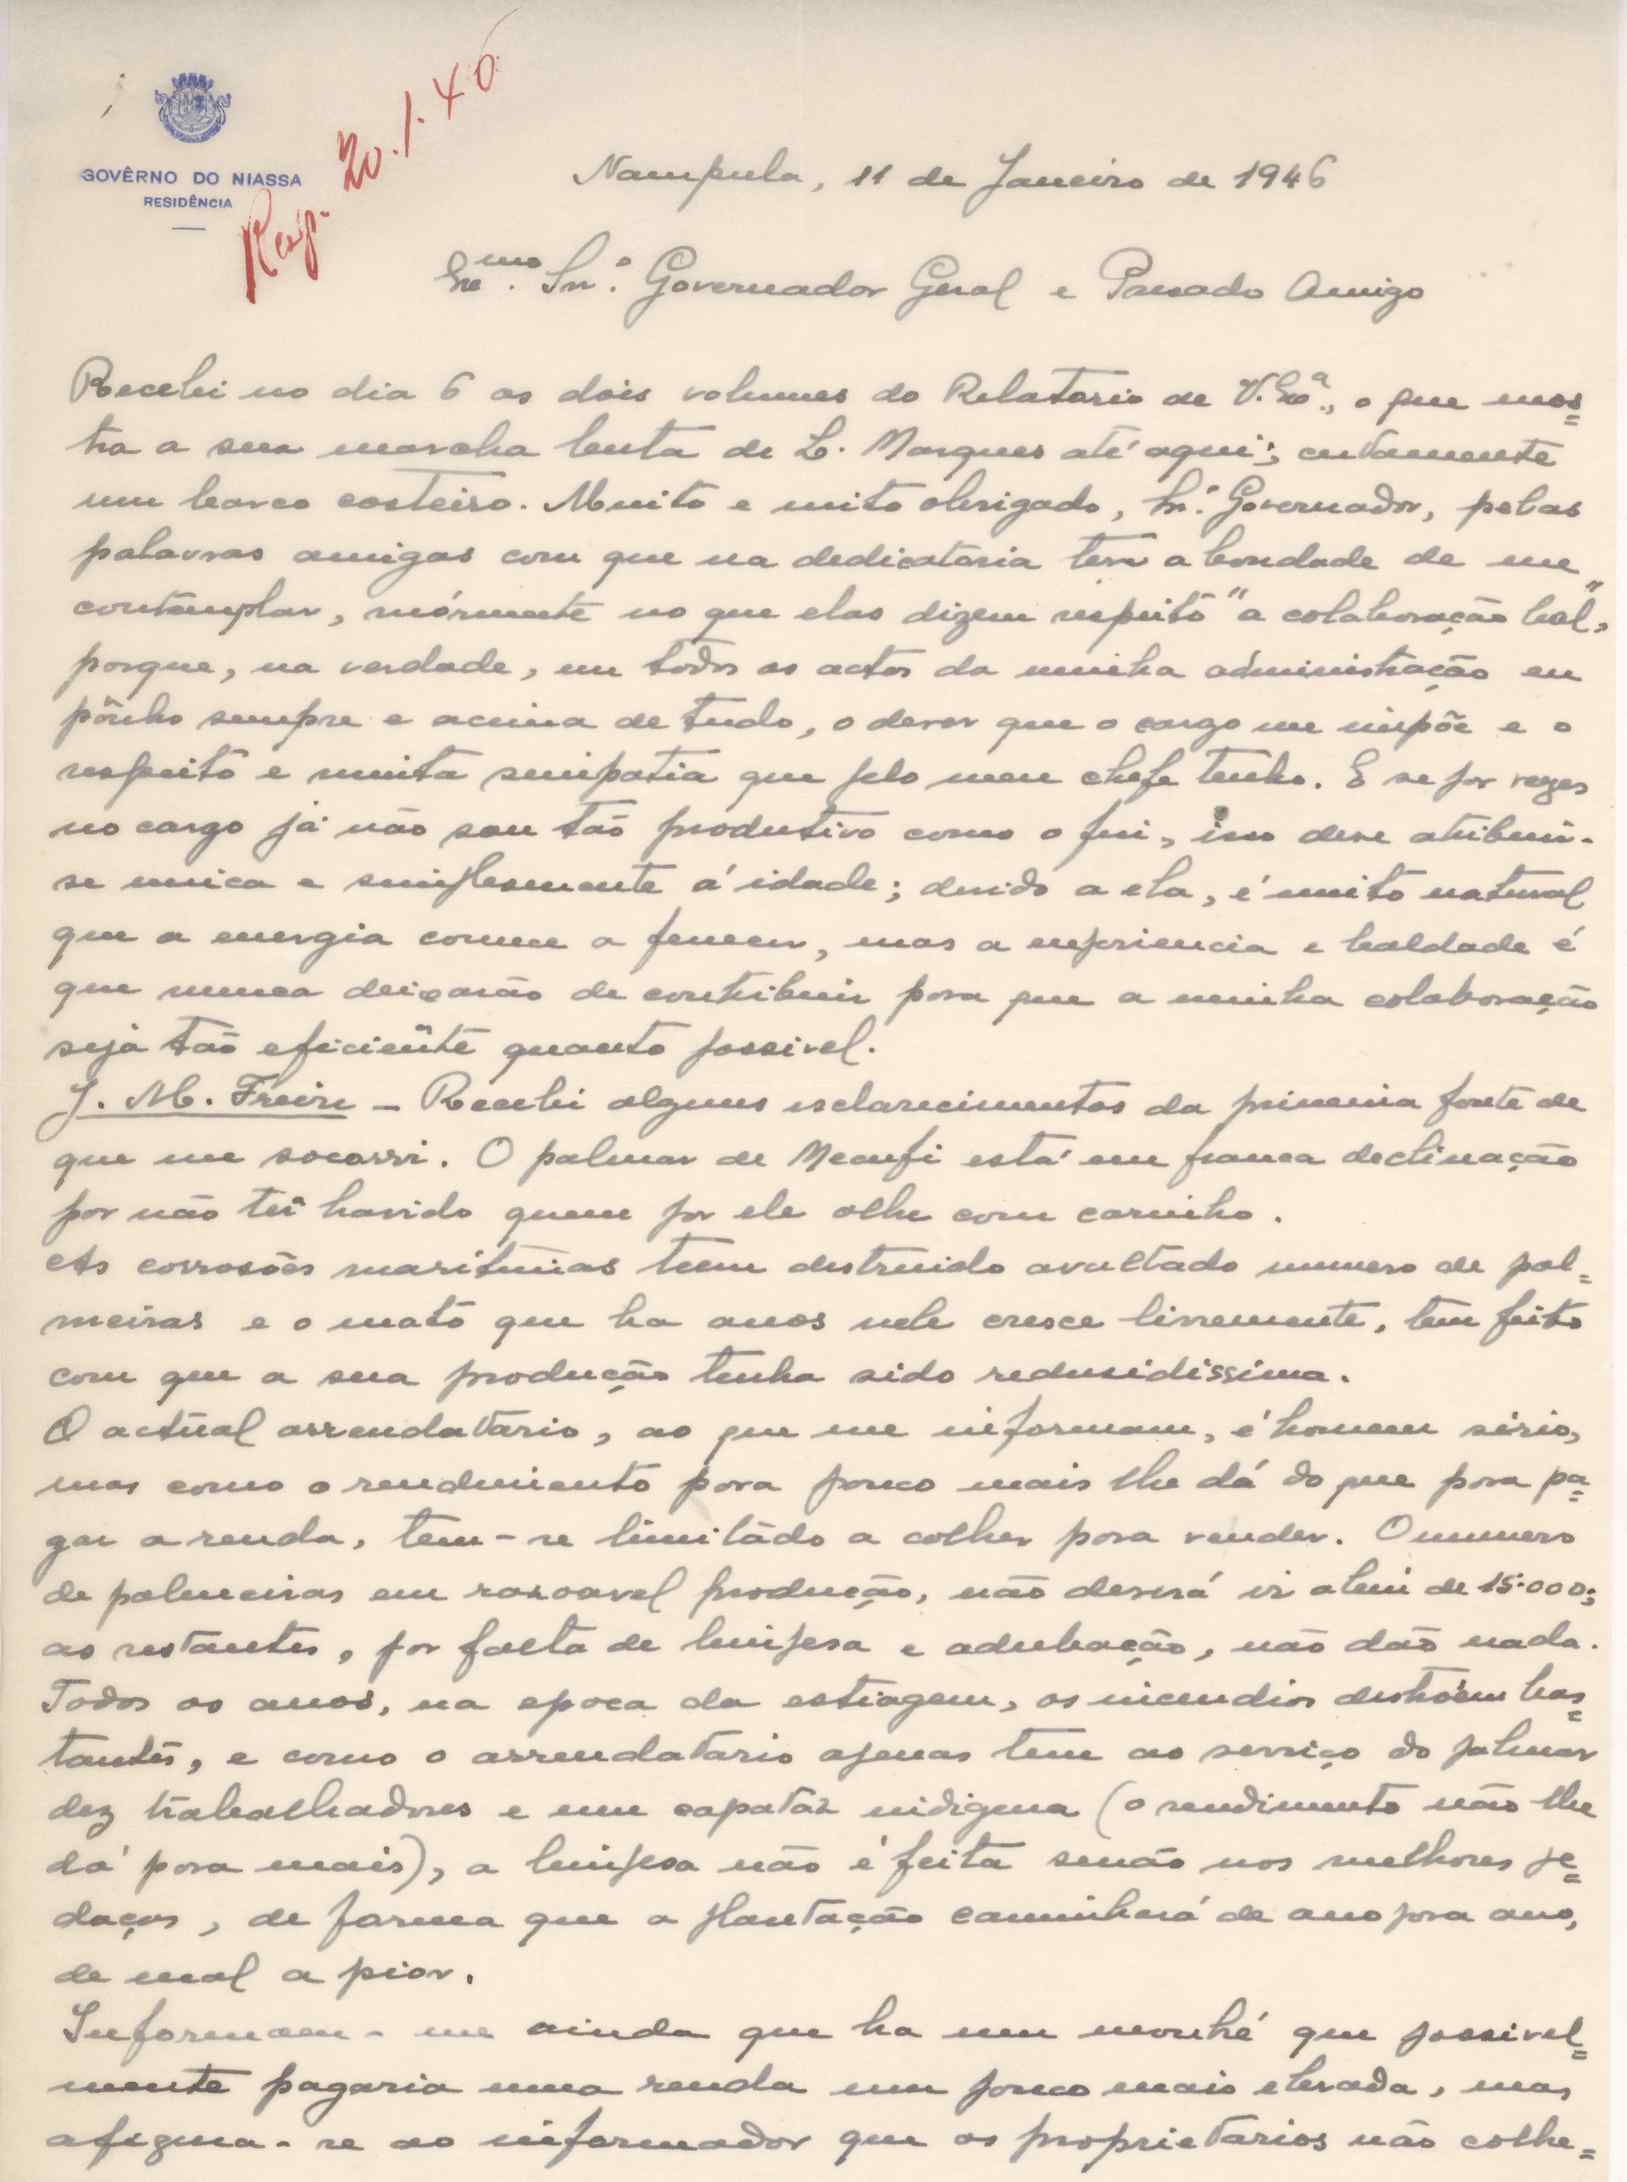 GOVÊRNO DO NIASSA
RESIDÊNCIA
Resp. 20.1.46
Nampula, 11 de Janeiro de 1946
Exmo. Snr. Governador Geral e Prezado Amigo
Recebi no dia 6 os dois volumes do Relatorio de V. Exª., o que mos=
tra a sua marcha lenta de L. Marques até aqui; certamente
um barco costeiro. Muito e muito obrigado, Snr. Governador, pelas
palavras amigas com que na dedicatoria teve a bondade de me
contemplar, mórmente no que elas dizem respeito "a colaboração leal",
porque, na verdade, em todos os actos da minha administração eu
pônho sempre e acima de tudo, o dever que o cargo me impõe e o
respeito e muita simpatia que pelo meu chefe tenho. E se por vezes
no cargo já não sou tão produtivo como o fui, isso deve atribuir-
se unica e simplesmente á idade; devido a ela, é muito natural
que a energia comece a fenecer, mas a experiencia e lealdade é
que nunca deixarão de contribuir para que a minha colaboração
seja tão eficiente quanto possivel.
J. M. Freire - Recebi alguns esclarecimentos da primeira fonte de
que me socorri. O palmar de Mecufi está em franca declinação
por não ter havido quem por ele olhe com carinho.
As corrosões maritimas teem destruido avultado numero de pal=
meiras e o mato que ha anos nele cresce livremente, tem feito
com que a sua produção tenha sido redusidissima.
O actual arrendatario, ao que me informam, é homem sério,
mas como o rendimento para pouco mais lhe dá do que para pa=
gar a renda, tem-se limitado a colher para vender. O numero
de palmeiras em rasoavel produção, não deverá ir alem de 15.000;
as restantes, por falta de limpesa e adubação, não dão nada.
Todos os anos, na epoca da estiagem, os incendios destroem bas=
tantes, e como o arrendatario apenas tem ao serviço do palmar
dez trabalhadores e um capataz indigena (o rendimento não lhe
dá para mais), a limpesa não é feita senão nos melhores pe=
daços, de forma que a plantação caminhará de ano para ano,
de mal a pior.
Informam-me ainda que ha um monhé que possivel=
mente pagaria uma renda um pouco mais elevada, mas
afigura-se ao informador que os proprietarios não colhe=